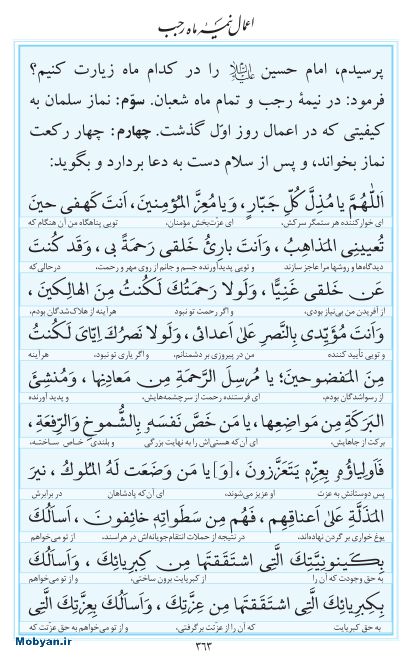 اعمال نیمۀ ماه رجب
پرسیدم، امام حسین علیه‌السلام را در کدام ماه زیارت کنیم؟
فرمود: در نیمۀ رجب و تمام ماه شعبان. سوّم: نماز سلمان به
کیفیتی که در اعمال روز اوّل گذشت. چهارم: چهار رکعت
نماز بخواند، و پس از سلام دست به دعا بردارد و بگوید:
اَللّٰهُمَّ يا مُذِلَّ كُلِّ جَبّارٍ، وَيا مُعِزَّ الْمُؤْمِنينَ، اَنْتَ كَهْفى حينَ
ای خوارکننده هر ستمگر سرکش، ای عزّت‌بخش مؤمنان، تویی پناهگاه من آن هنگام که
تُعْيينِى الْمَذاهِبُ، وَاَنْتَ بارِئُ خَلْقى رَحْمَةً بى، وَقَدْ كُنْتَ
دیدگاه‌ها و روشها مرا عاجز سازند و تویی پدیدآورنده جسم و جانم از روی مهر و رحمت، در حالی که
عَنْ خَلْقى غَنِيًّا، وَلَوْلا رَحْمَتُكَ لَكُنْتُ مِنَ الْهالِكينَ،
از آفریدن من بی‌نیاز بودی، و اگر رحمت تو نبود هرآینه از هلاک‌شدگان بودم،
وَاَنْتَ مُؤَيِّدى بِالنَّصْرِ عَلىٰ اَعْدائى، وَلَوْلا نَصْرُكَ اِيّاىَ لَكُنْتُ
و تویی تأیید کننده من در پیروزی بر دشمنانم، و اگر یاری تو نبود، هرآینه
مِنَ الْمَفْضوحينَ؛ يا مُرْسِلَ الرَّحْمَةِ مِنْ مَعادِنِها، وَمُنْشِئَ
از رسواشدگان بودم، ای فرستنده رحمت از سرچشمه‌هایش، و پدید آورنده
الْبَرَكَةِ مِنْ مَواضِعِها، يا مَنْ خَصَّ نَفْسَهُ بِالشُّموخِ وَالرِّفْعَةِ،
برکت از جاهایش، ای آن‌که هستی‌اش را به نهایت بزرگی و بلندی خاص ساخته،
فَاَوْلِياؤُهُ بِعِزِّهِ يَتَعَزَّزونَ، [وَ] يا مَنْ وَضَعَتْ لَهُ الْمُلوكُ، نيرَ
پس دوستانش به عزت او عزیز می‌شوند، ای آن‌که پادشاهان در برابرش
الْمَذَلَّةِ عَلىٰ اَعْناقِهِمْ، فَهُمْ مِنْ سَطَواتِهِ خائِفونَ، اَسْاَلُكَ
یوغ خواری بر گردن نهاده‌اند، در نتیجه از حملات انتقام‌جویانه‌اش در هراسند، از تو می‌خواهم
بِكَيْنونِيَّتِكَ الَّتِى اشْتَقَقْتَها مِنْ كِبْرِيائِكَ، وَاَسْاَلُكَ
به حق وجودت که آن را از کبریایت برون ساختی، و از تو می‌خواهم
بِكِبْرِيائِكَ الَّتِى اشْتَقَقْتَها مِنْ عِزَّتِكَ، وَاَسْاَلُكَ بِعِزَّتِكَ الَّتِى
به حق کبریایت که آن را از عزّتت برگرفتی، و از تو می‌خواهم به حق عزّتت که
۳۶۳
Mobyan.ir